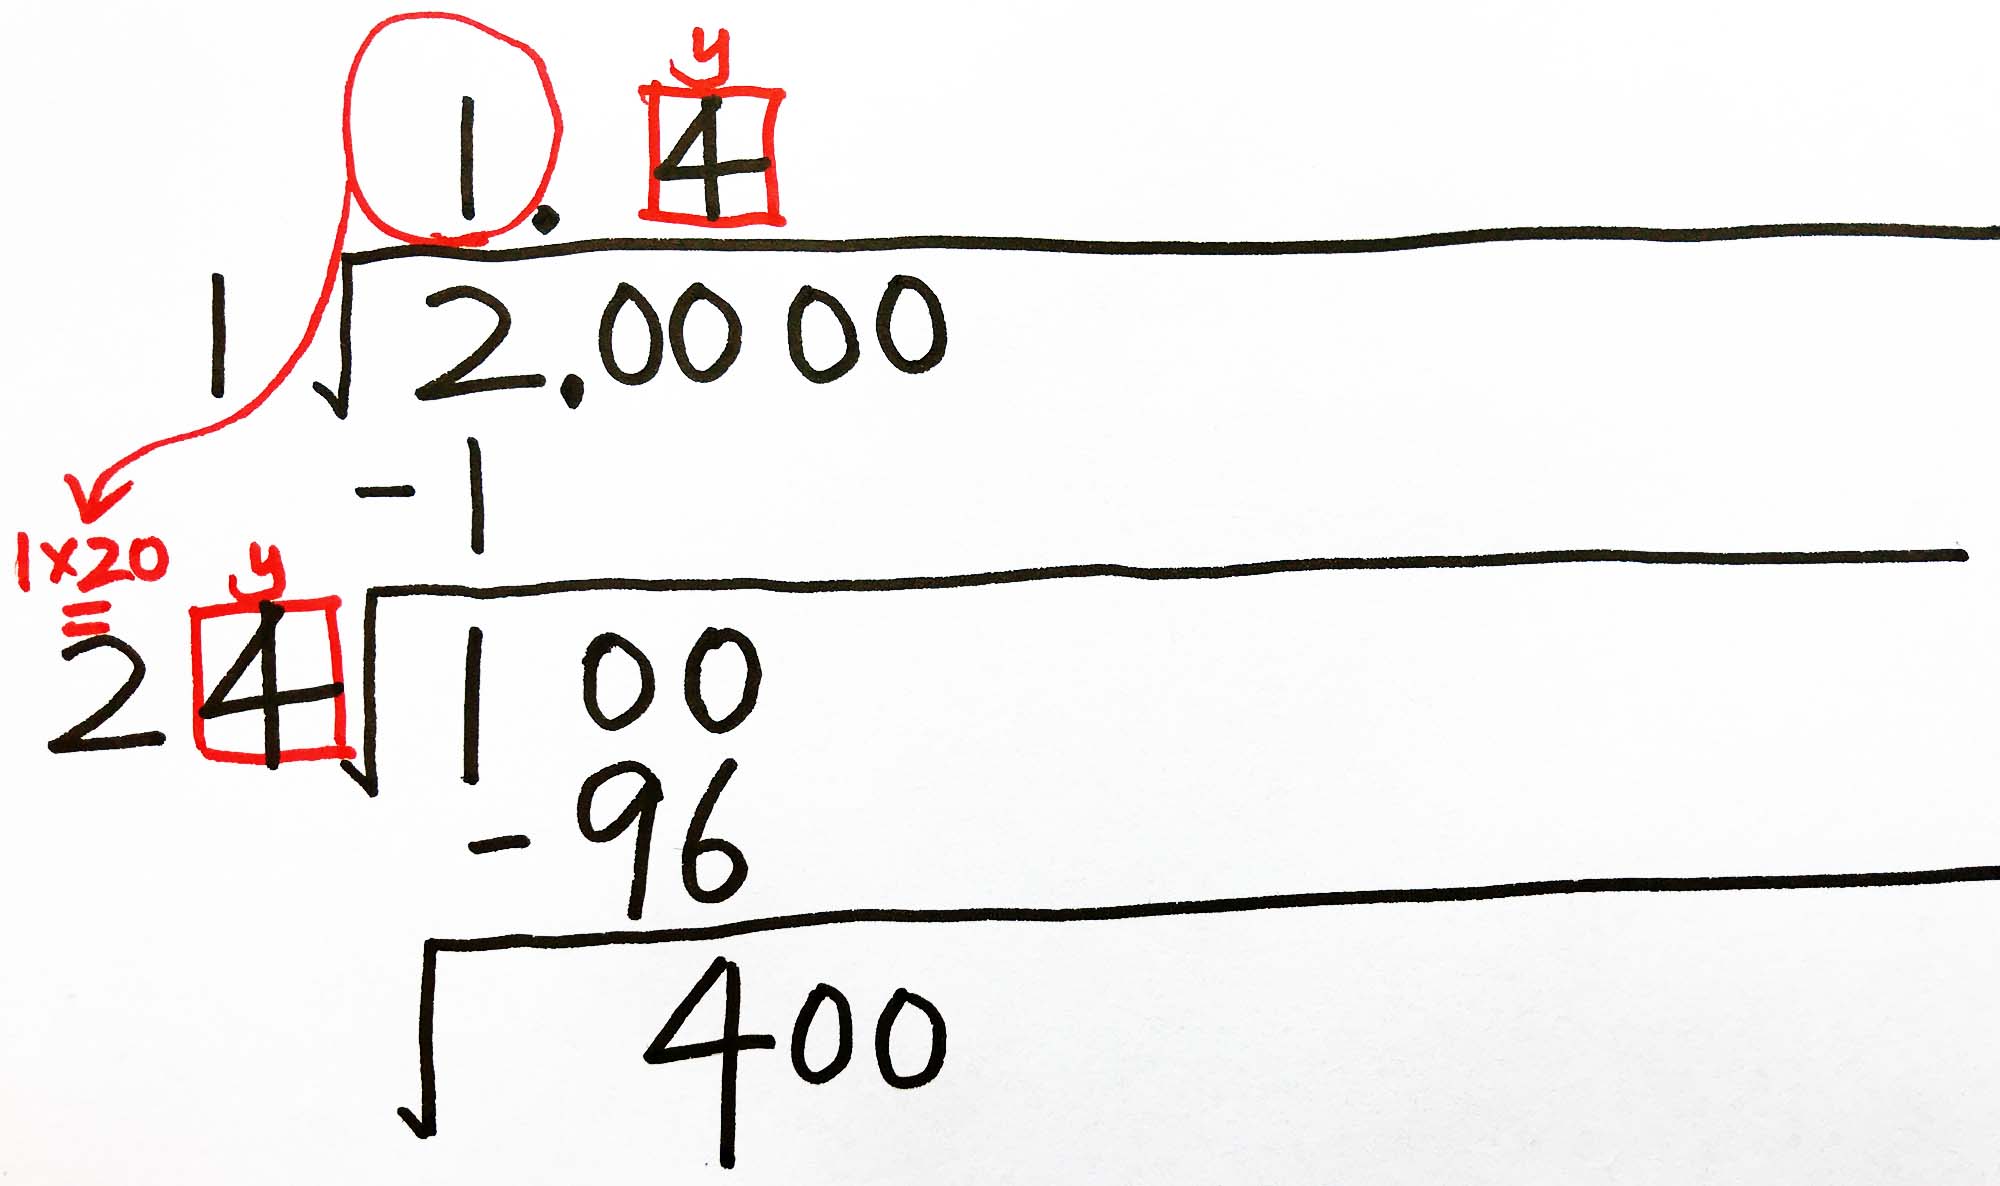 y
1. 4
1 √2.0000
-1
1×20
=
y
2 4 √1 00
-96
√400